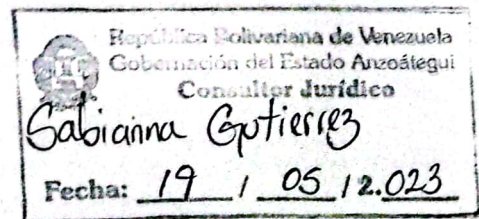 República Bolivariana de Venezuela
Gobernación del Estado Anzoátegui
Consultor Jurídico
Sabianna Gutierrez
Fecha: 19 / 05 / 2.023